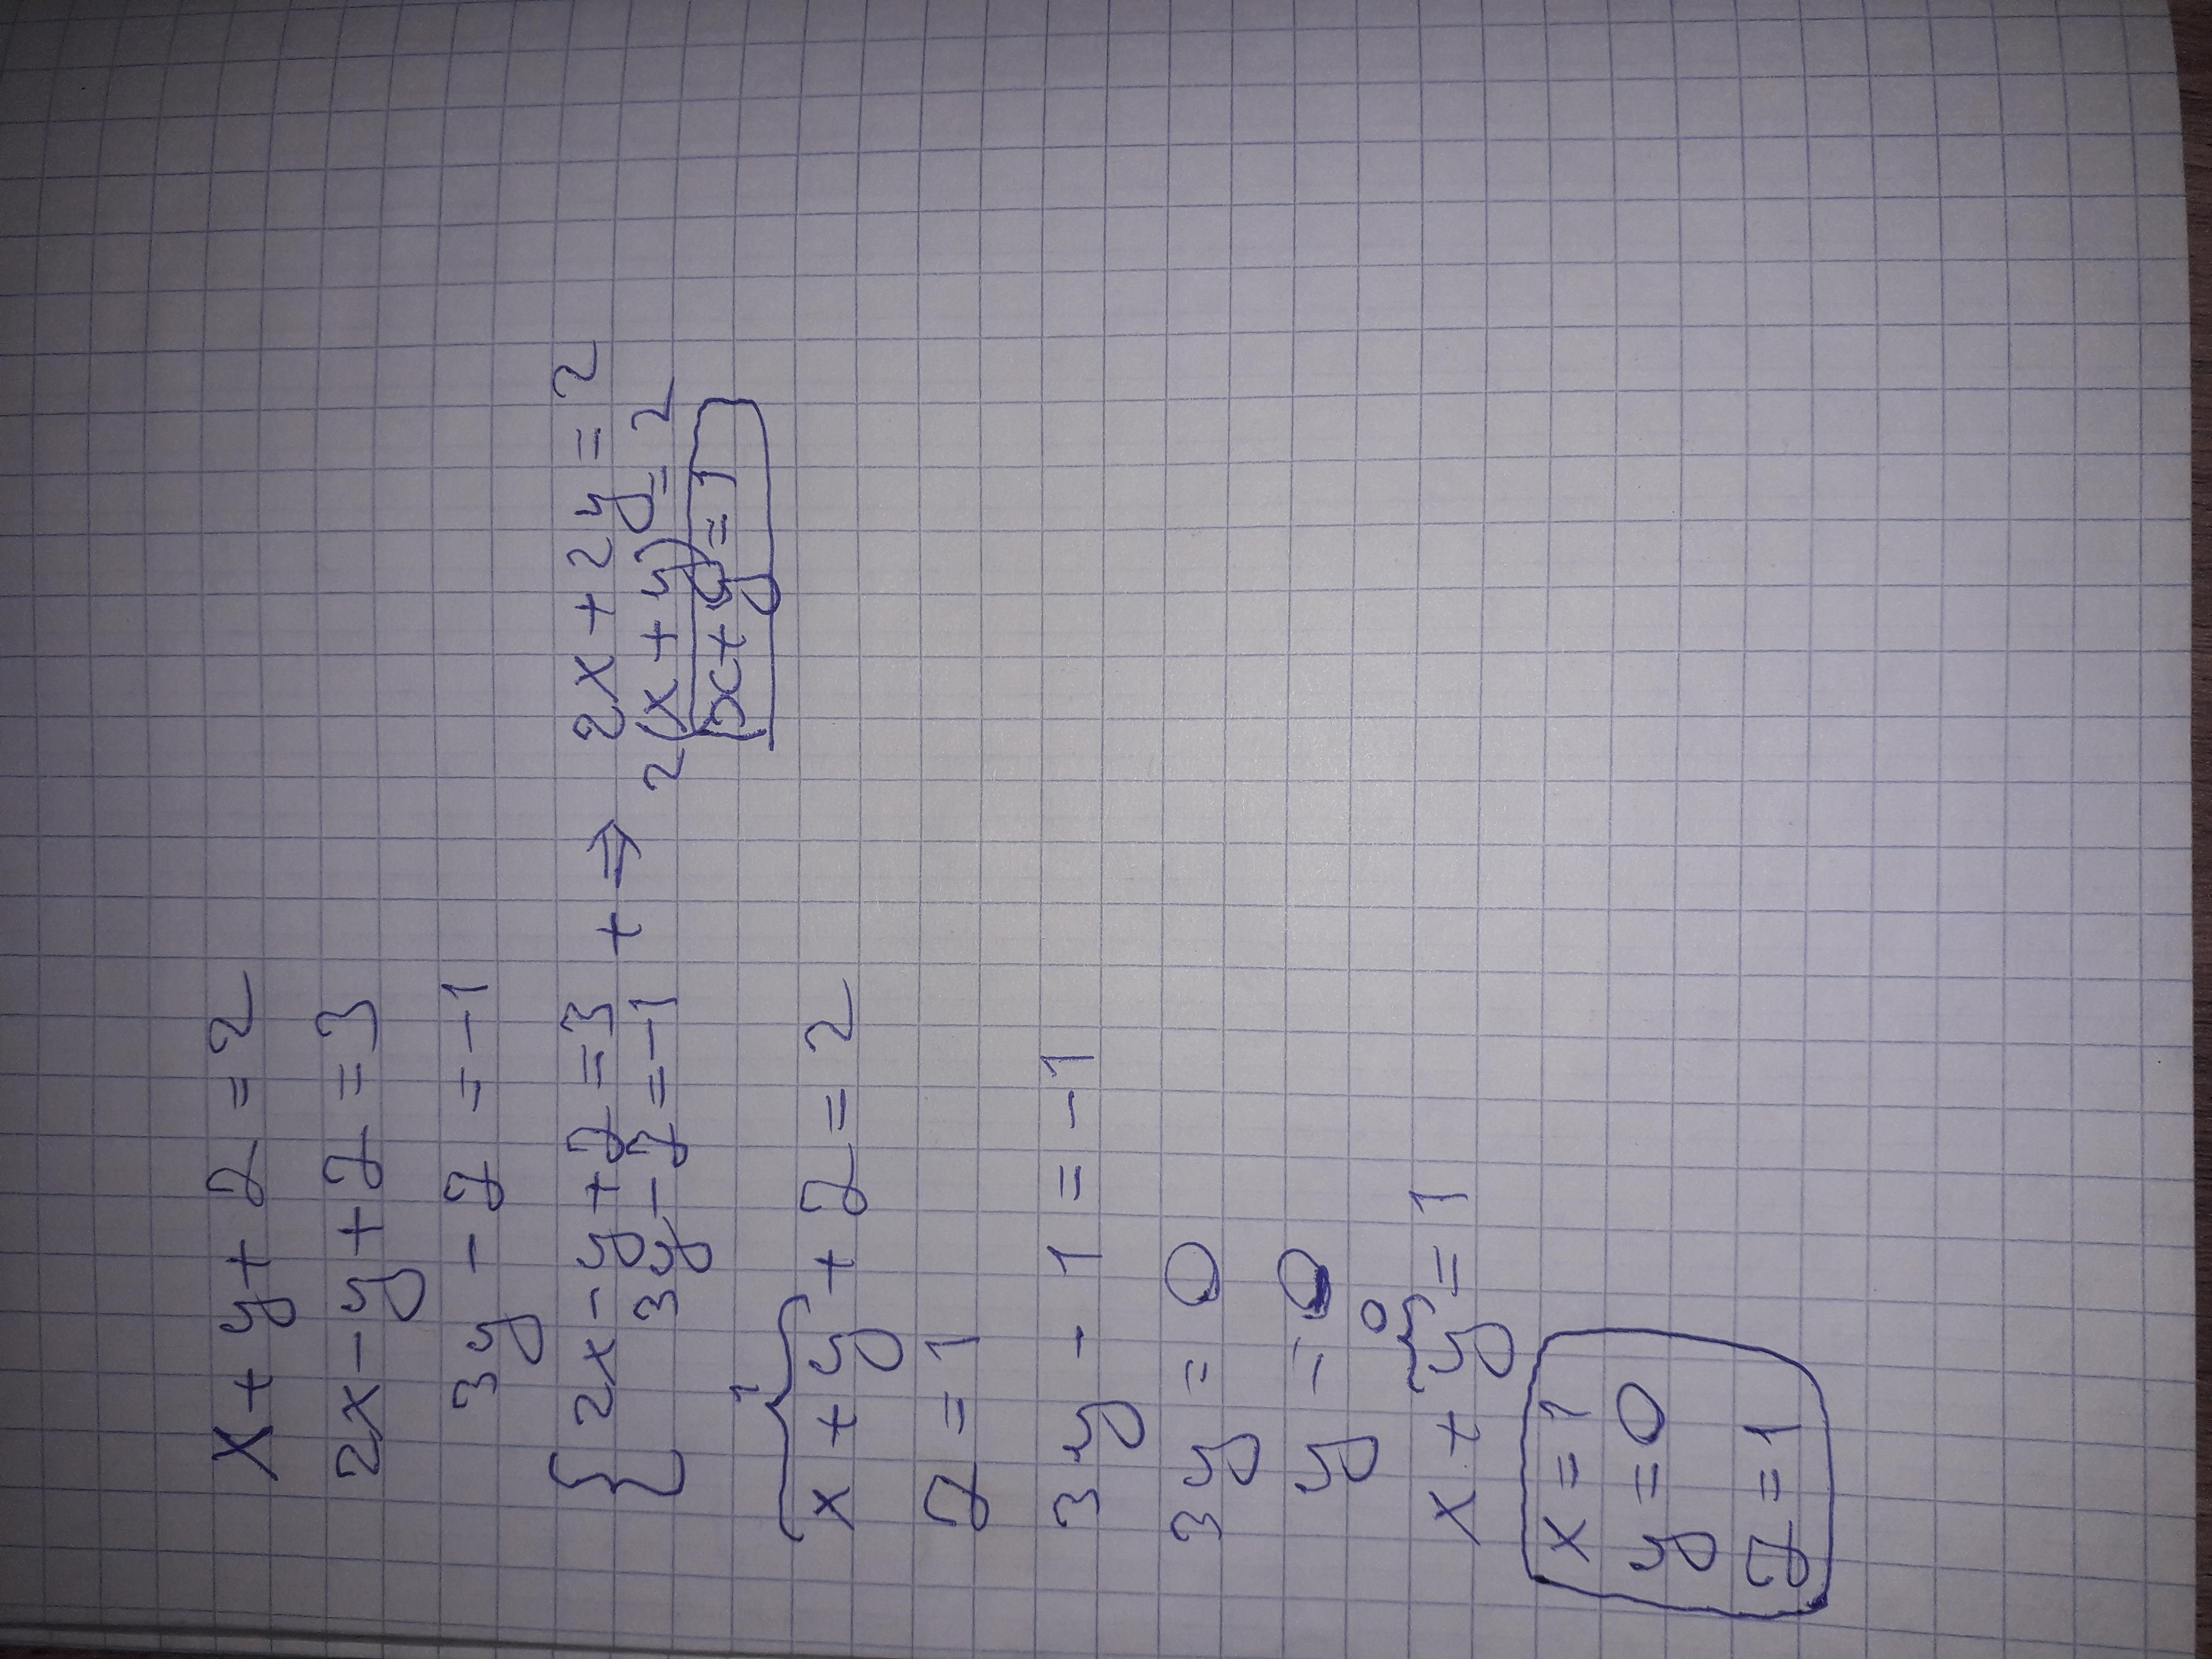 x + y + z = 2
2x - y + z = 3
3y - z = -1
{ 2x - y + z = 3 + ⇒ 2x + 2y = 2
3y - z = -1 2(x + y) = 2
x + y = 1
1
x + y + z = 2
z = 1
3y - 1 = -1
3y = 0
y = 0
0
x + y = 1
x = 1
y = 0
z = 1